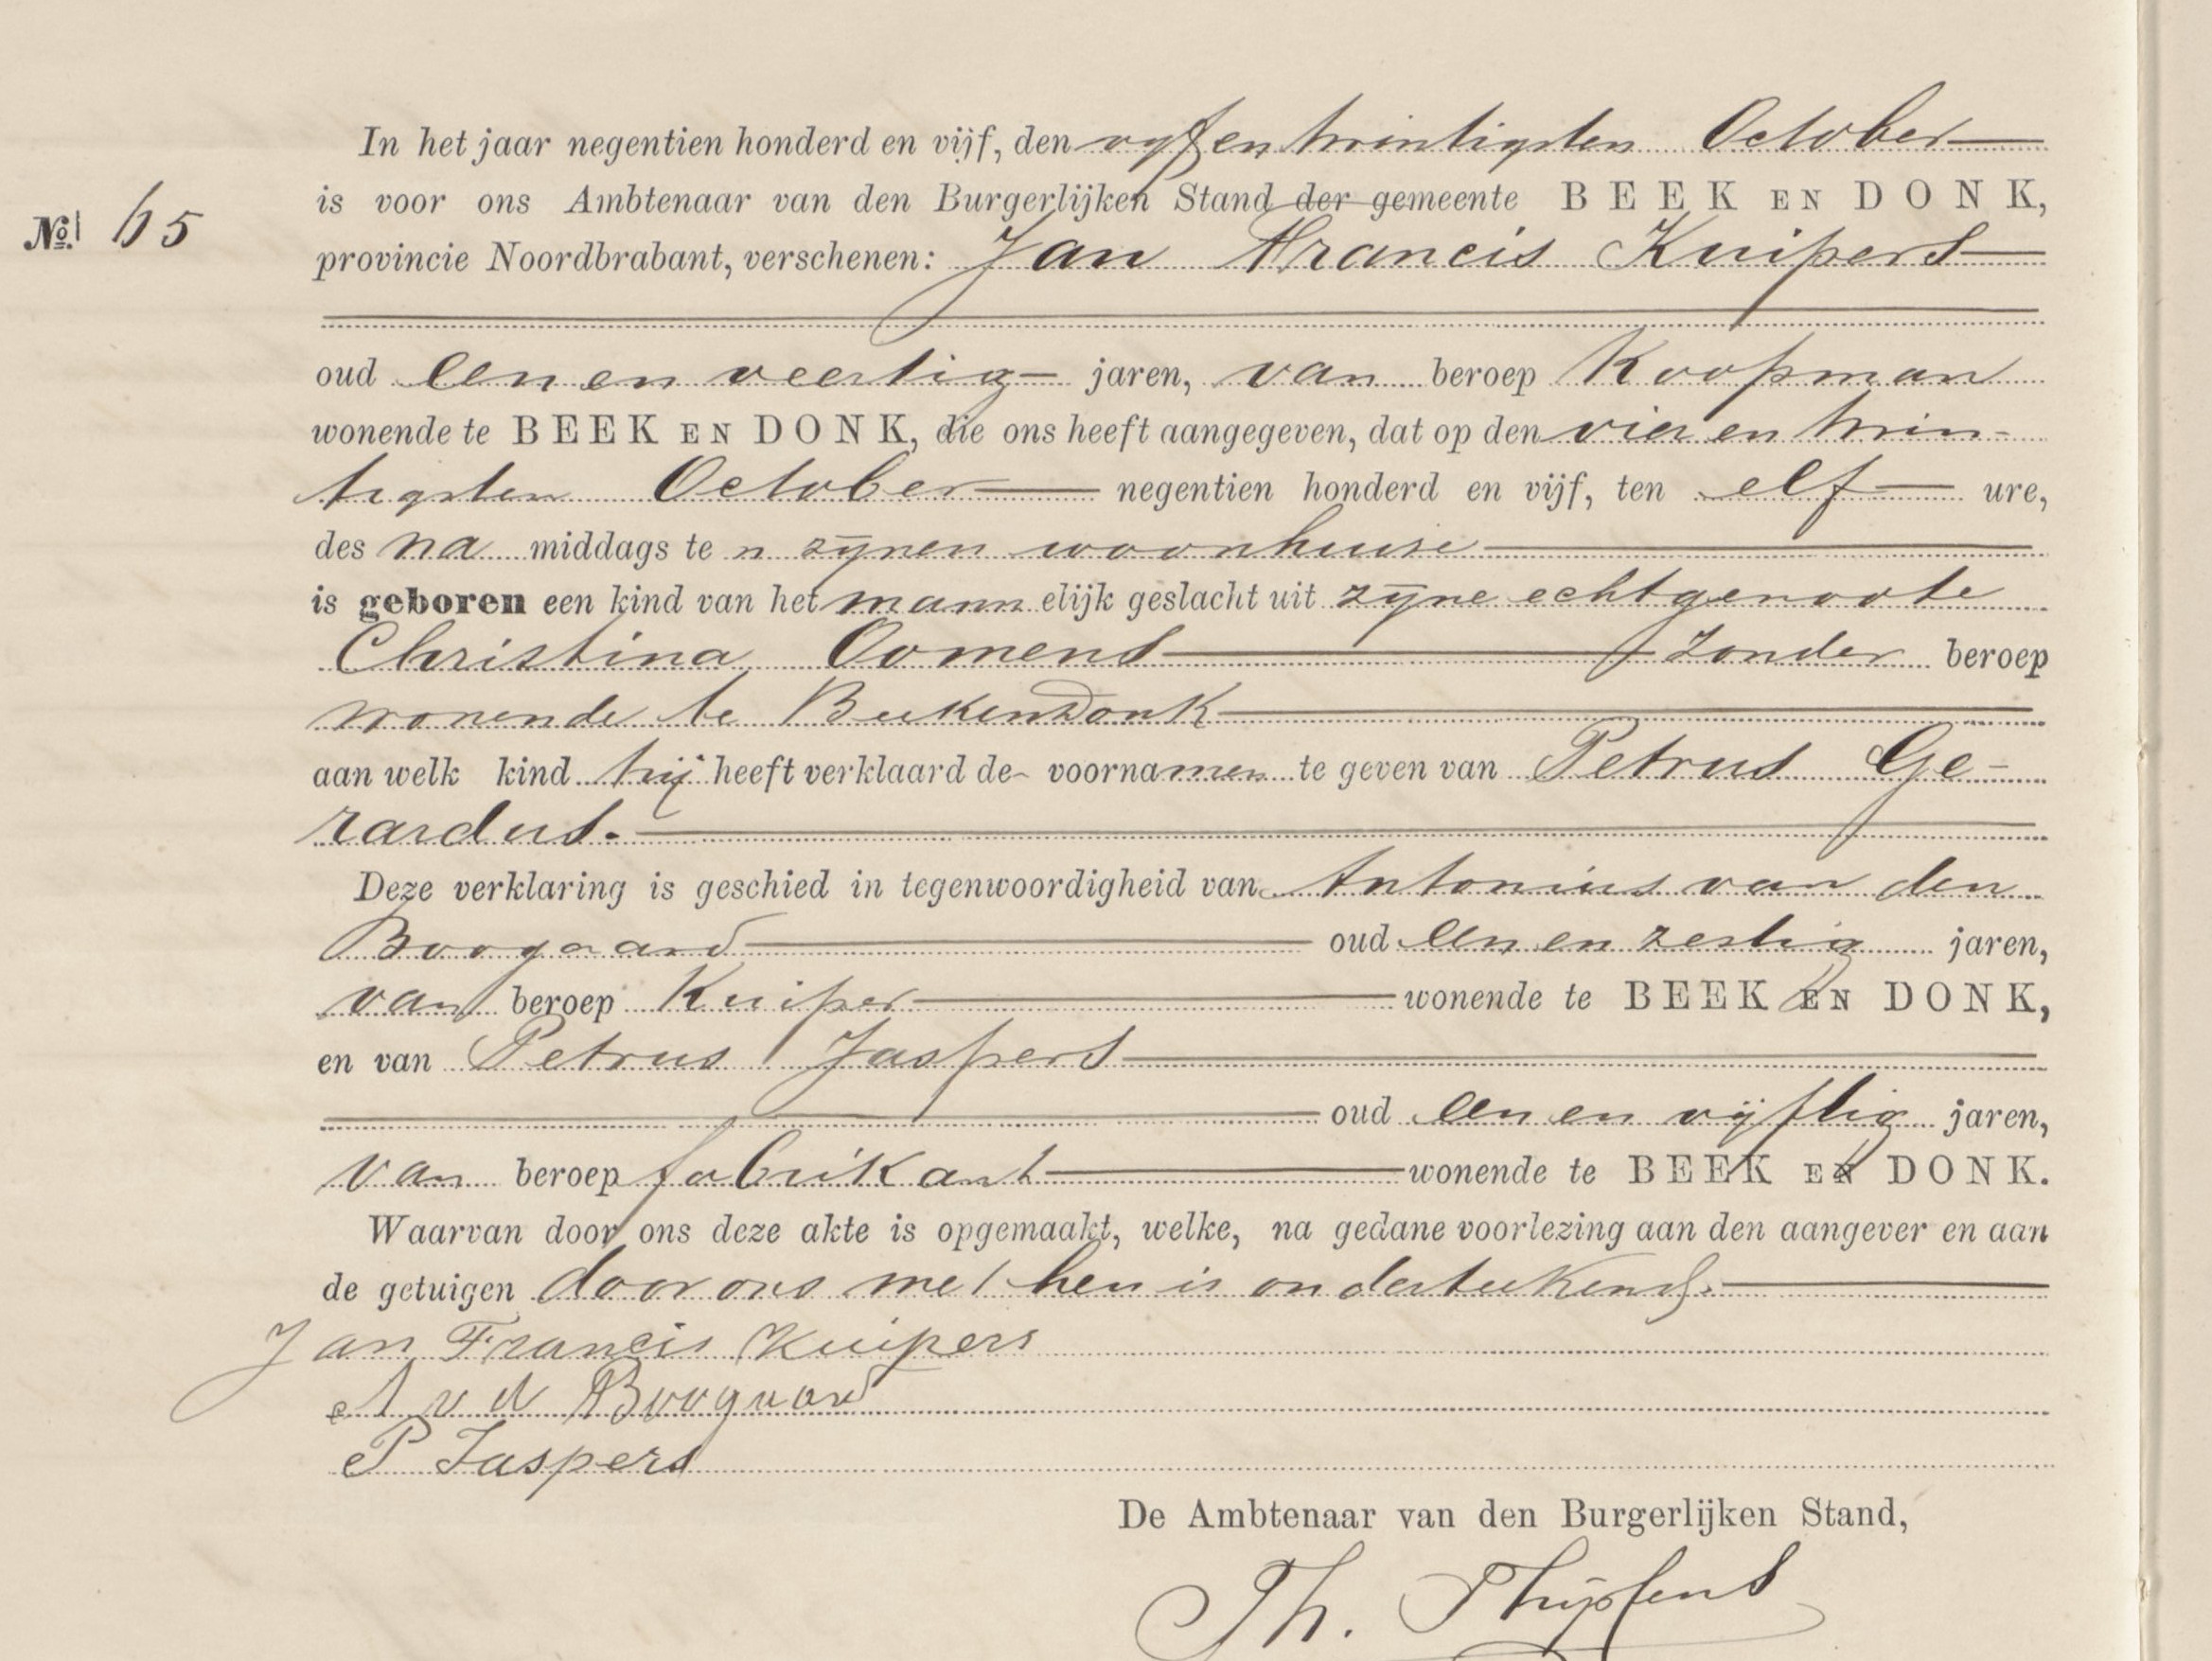 In het jaar negentien honderd en vijf, den vyf en twintigsten October
is voor ons Ambtenaar van den Burgerlijken Stand der gemeente BEEK EN DONK,
No. 65
provincie Noordbrabant, verschenen: Jan Francis Kuipers
oud een en veertig jaren, van beroep Koopman
wonende te BEEK EN DONK, die ons heeft aangegeven, dat op den vier en twin-
tigsten October negentien honderd en vijf, ten elf ure,
des na middags te n zynen woonhuise
is geboren een kind van het mannelijk geslacht uit zyne echtgenoote
Christina Oomens zonder beroep
wonende te Beek en Donk
aan welk kind hij heeft verklaard de voornamen te geven van Petrus Ge-
rardus.
Deze verklaring is geschied in tegenwoordigheid van Antonius van den
Boogaard oud een en zestig jaren,
van beroep Kuiper wonende te BEEK EN DONK,
en van Petrus Jaspers
oud een en vijftig jaren,
van beroep fabrikant wonende te BEEK EN DONK.
Waarvan door ons deze akte is opgemaakt, welke, na gedane voorlezing aan den aangever en aan
de getuigen door ons met hen is onderteekend.
Jan Francis Kuipers
A v d Boogaard
P Jaspers
De Ambtenaar van den Burgerlijken Stand,
Th.